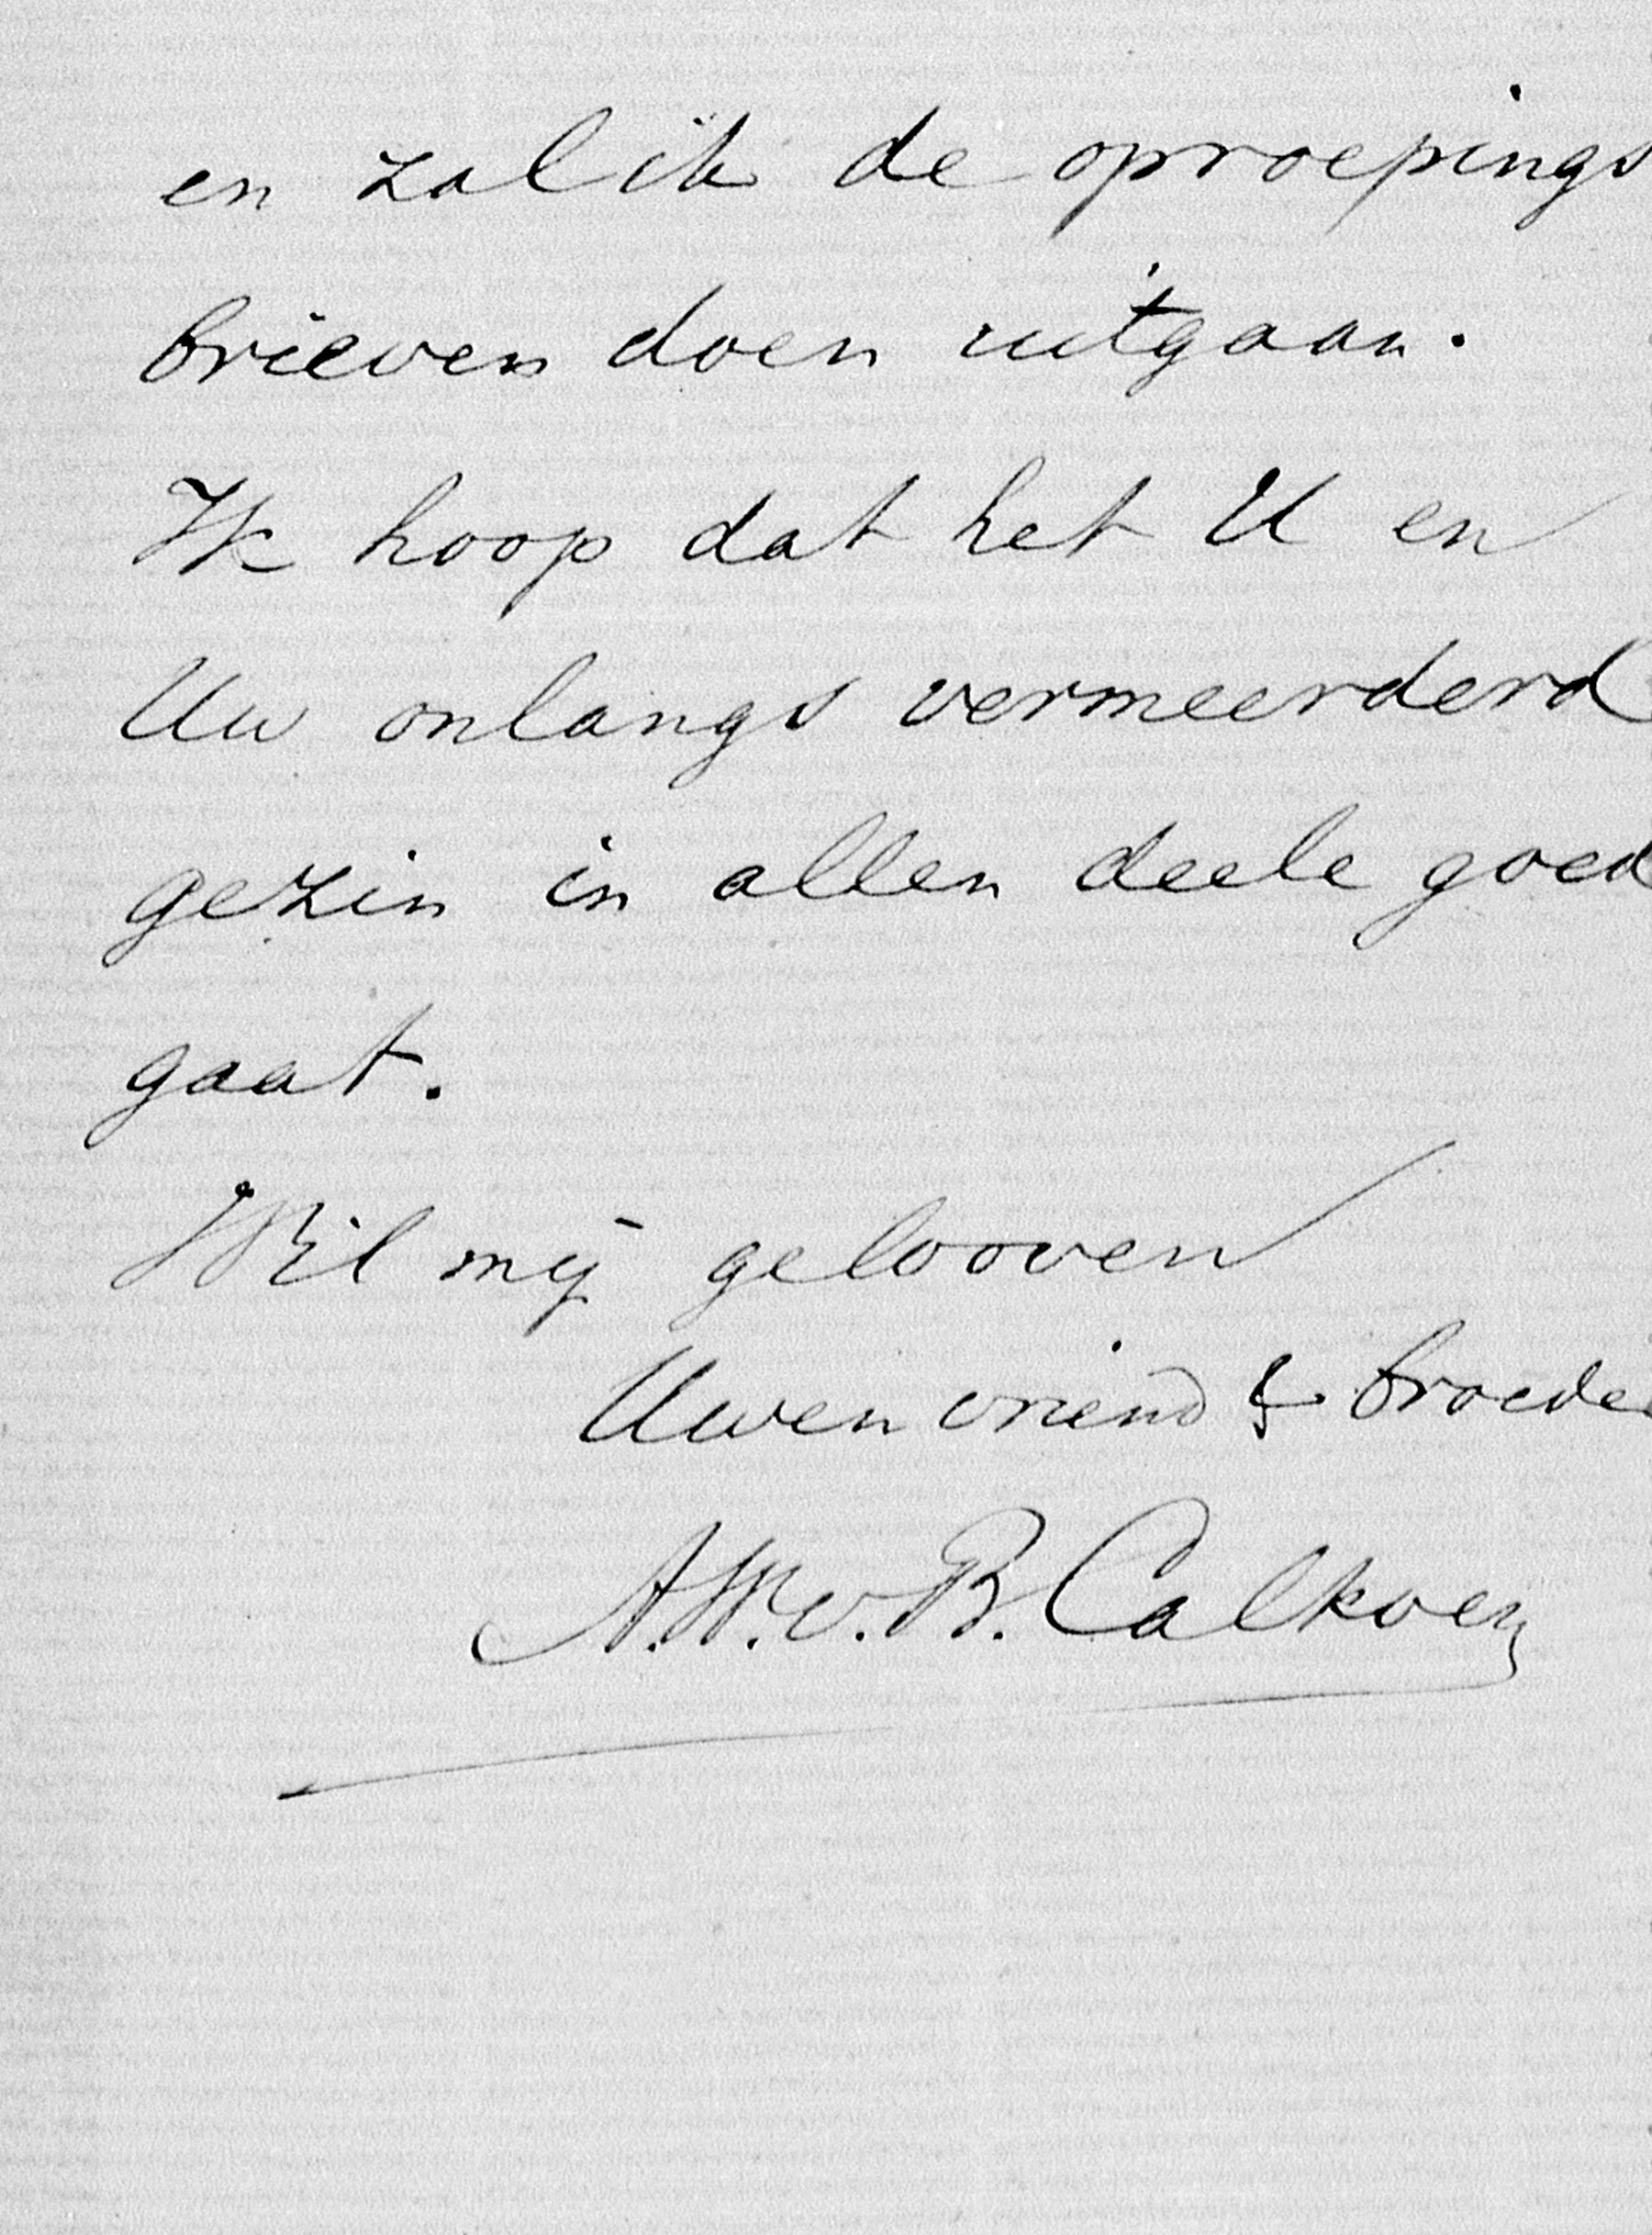 en zal ik de oproepings
brieven doen uitgaan.
Ik hoop dat het U en
Uw onlangs vermeerderd
gezin in allen deele goed
gaat.
Wil mij gelooven
Uwen vriend & broeder
A.W.v.B. Calkoen